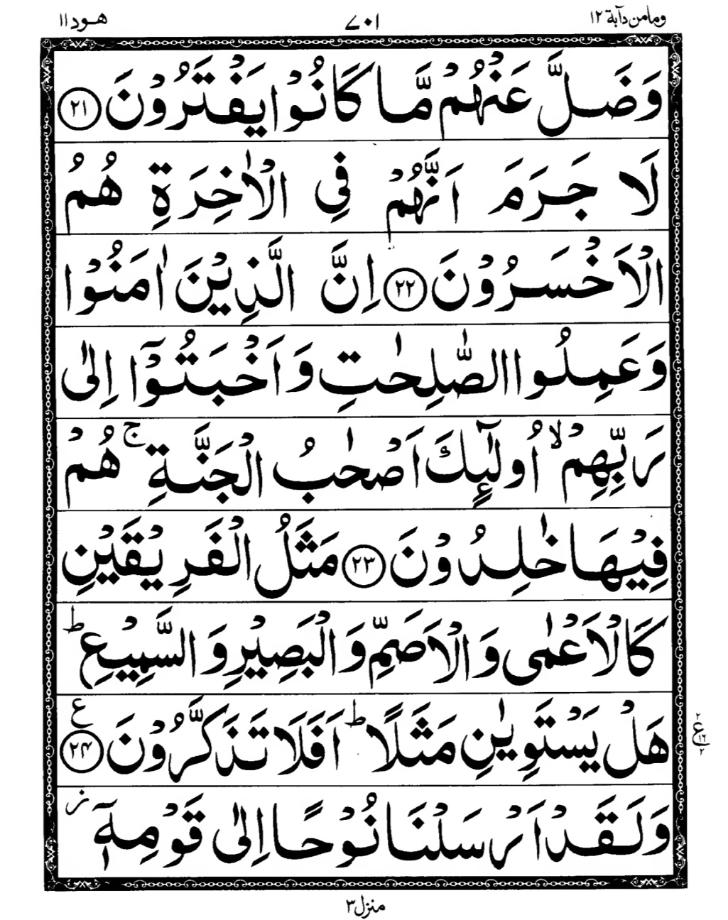 ومامن دآبة ۱۲ ۷۰۱ هود ۱۱
وَضَلَّ عَنْهُمْ مَّا كَانُوْا يَفْتَرُوْنَ ۝۲۱
لَا جَرَمَ اَنَّهُمْ فِى الْاٰخِرَةِ هُمُ
الْاَخْسَرُوْنَ ۝۲۲ اِنَّ الَّذِيْنَ اٰمَنُوْا
وَعَمِلُوا الصّٰلِحٰتِ وَاَخْبَتُوْٓا اِلٰى
رَبِّهِمْ ۙ اُولٰٓئِكَ اَصْحٰبُ الْجَنَّةِ ۚ هُمْ
فِيْهَا خٰلِدُوْنَ ۝۲۳ مَثَلُ الْفَرِيْقَيْنِ
كَالْاَعْمٰى وَالْاَصَمِّ وَالْبَصِيْرِ وَالسَّمِيْعِ ؕ
هَلْ يَسْتَوِيٰنِ مَثَلًا ؕ اَفَلَا تَذَكَّرُوْنَ ۝۲۴ ع
۲ ع ۱۶ ۲
وَلَقَدْ اَرْسَلْنَا نُوْحًا اِلٰى قَوْمِهٖٓ ز
منزل ۳